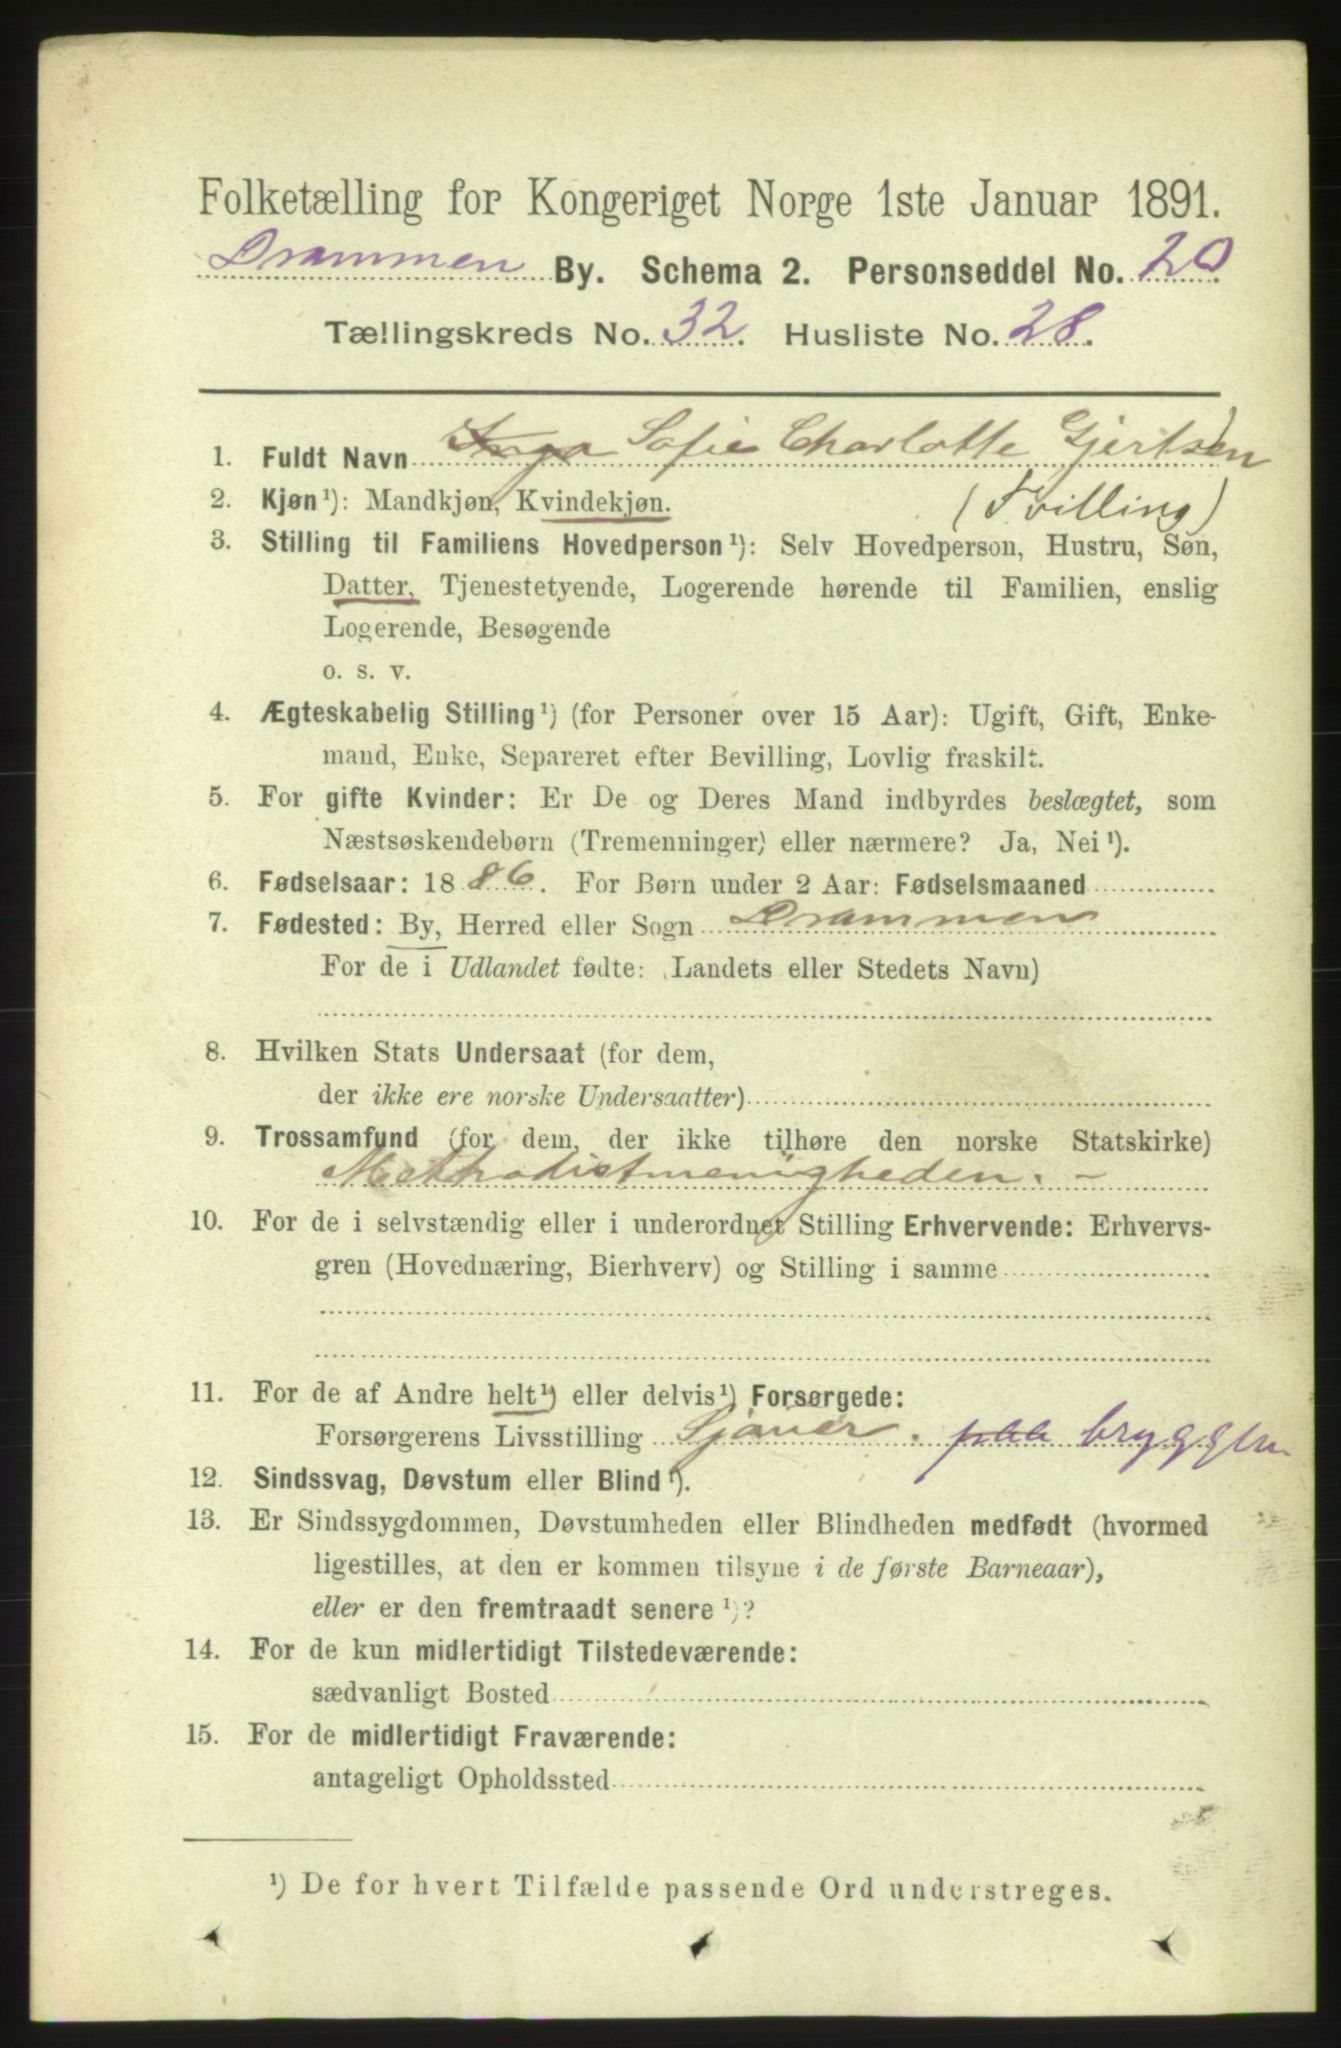 Folketælling for Kongeriget Norge 1ste Januar 1891.
Drammen By. Schema 2. Personseddel No. 20
Tællingskreds No. 32. Husliste No. 28.
1. Fuldt Navn Inga Sofie Charlotte Gjertsen
2. Kjøn ¹): Mandkjøn, Kvindekjøn. (Tvilling)
3. Stilling til Familiens Hovedperson ¹): Selv Hovedperson, Hustru, Søn,
Datter, Tjenestetyende, Logerende hørende til Familien, enslig
Logerende, Besøgende
o. s. v.
4. Ægteskabelig Stilling ¹) (for Personer over 15 Aar): Ugift, Gift, Enke-
mand, Enke, Separeret efter Bevilling, Lovlig fraskilt.
5. For gifte Kvinder: Er De og Deres Mand indbyrdes beslægtet, som
Næstsøskendebørn (Tremenninger) eller nærmere? Ja, Nei ¹).
6. Fødselsaar: 1886. For Børn under 2 Aar: Fødselsmaaned
7. Fødested: By, Herred eller Sogn Drammen
For de i Udlandet fødte: (Landets eller Stedets Navn)
8. Hvilken Stats Undersaat (for dem,
der ikke ere norske Undersaatter)
9. Trossamfund (for dem, der ikke tilhøre den norske Statskirke)
Methodistmenigheden. -
10. For de i selvstændig eller i underordnet Stilling Erhvervende: Erhvervs-
gren (Hovednæring, Bierhverv) og Stilling i samme
11. For de af Andre helt ¹) eller delvis ¹) Forsørgede:
Forsørgerens Livsstilling Sjauer. paa bryggen
12. Sindssvag, Døvstum eller Blind ¹).
13. Er Sindssygdommen, Døvstumheden eller Blindheden medfødt (hvormed
ligestilles, at den er kommen tilsyne i de første Barneaar),
eller er den fremtraadt senere ¹)?
14. For de kun midlertidigt Tilstedeværende:
sædvanligt Bosted
15. For de midlertidigt Fraværende:
antageligt Opholdssted
¹) De for hvert Tilfælde passende Ord understreges.